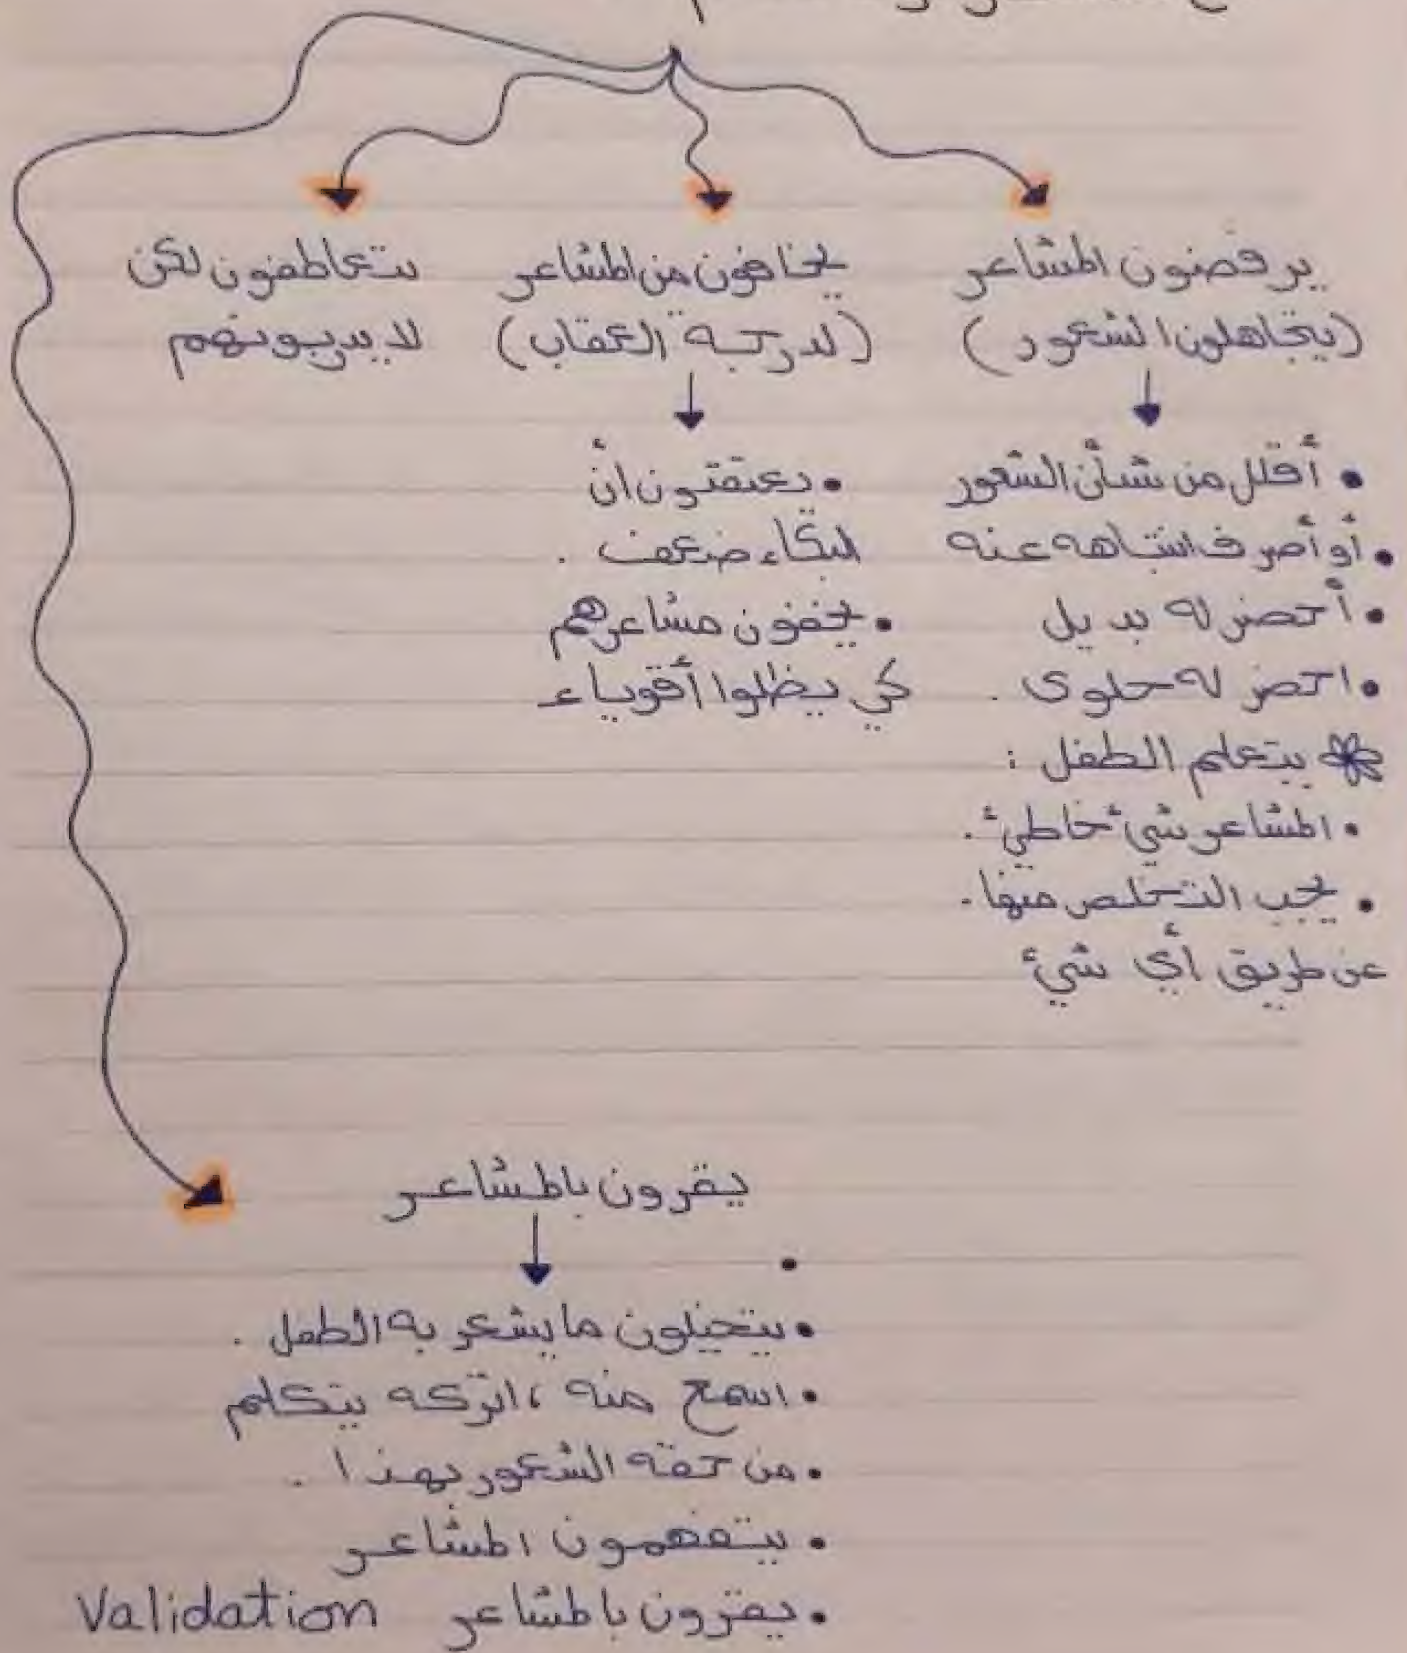 يرفضون المشاعر
(يتجاهلون الشعور)
• أقلل من شأن الشعور
• أو أصرف انتباهه عنه
• أحضر له بديل
• احضر له حلوى .
يتعلم الطفل :
• المشاعر شيء خاطئ .
• يجب التخلص منها .
عن طريق أي شيء
يخافون من المشاعر
(لدرجة العقاب)
• يعتقدون أن
البكاء ضعف .
• يخفون مشاعرهم
كي يظلوا أقوياء
يتعاطفون لكن
لا يدربونهم
يقرون بالمشاعر
•
• يتخيلون ما يشعر به الطفل .
• اسمع منه ، اتركه يتكلم
• من حقه الشعور بهذا .
• يتفهمون المشاعر
• يقرون بالمشاعر Validation